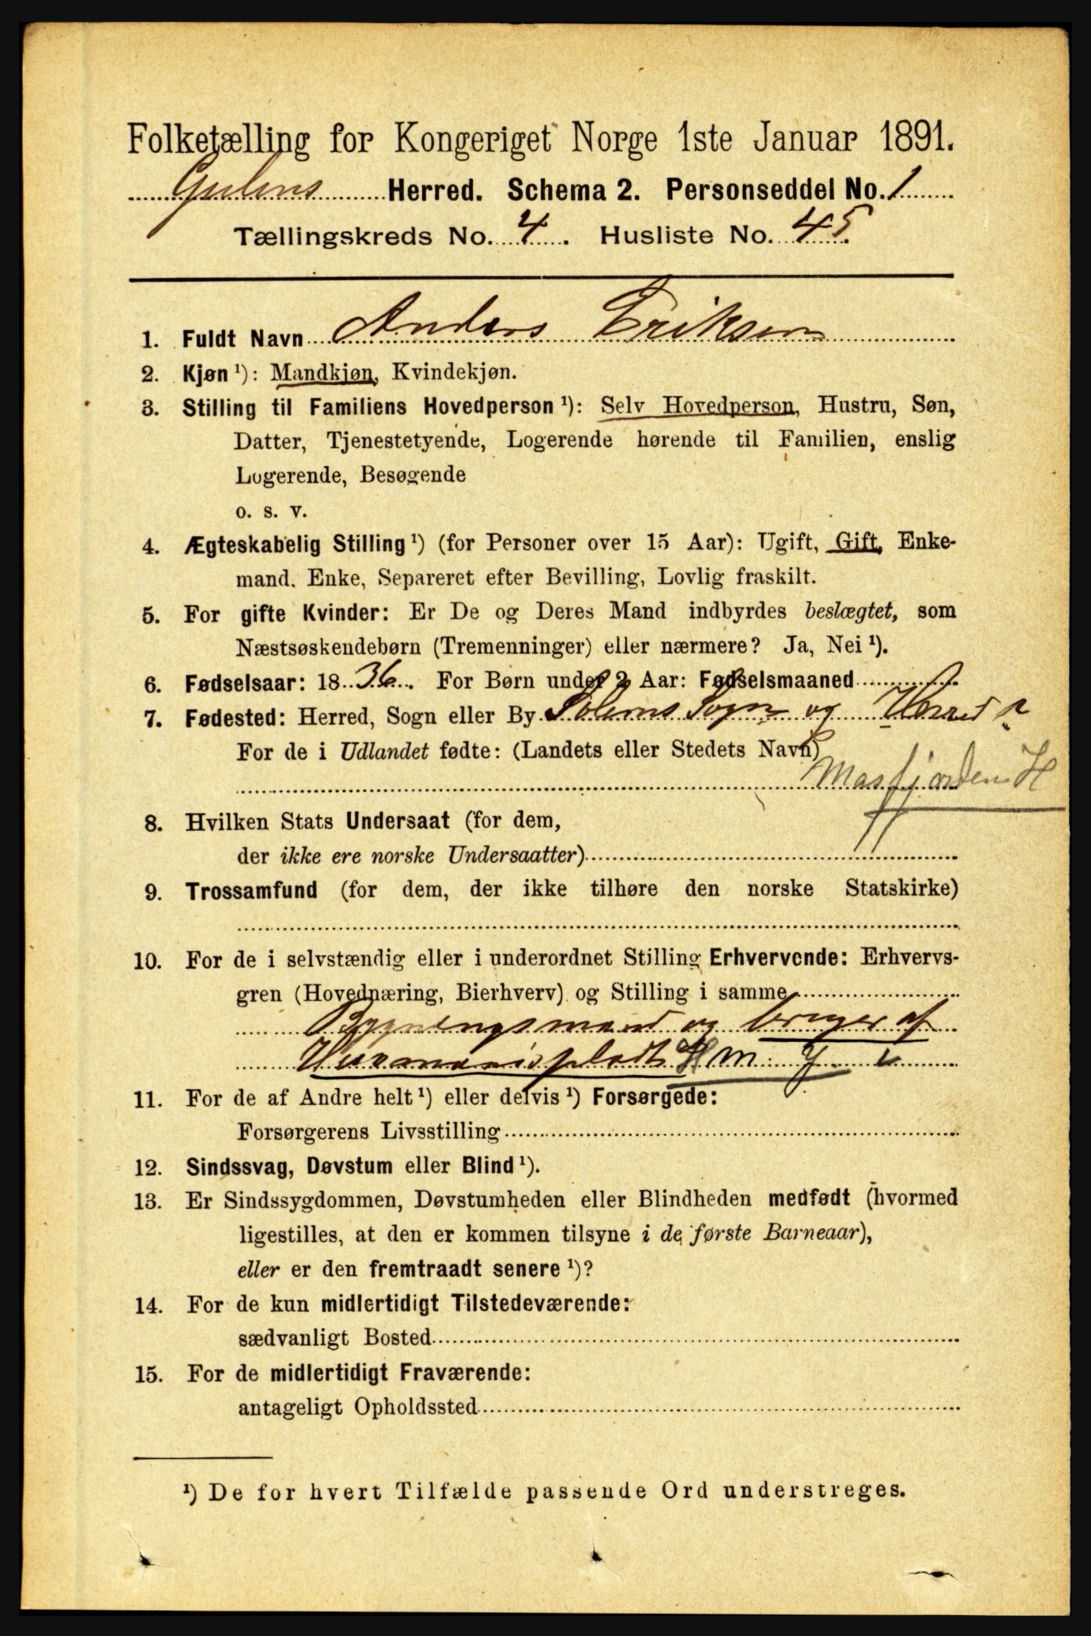 Folketælling for Kongeriget Norge 1ste Januar 1891.
Gulens Herred. Schema 2. Personseddel No. 1
Tællingskreds No. 4. Husliste No. 45.
1. Fuldt Navn Anders Eriksen
2. Kjøn ¹): Mandkjøn, Kvindekjøn.
3. Stilling til Familiens Hovedperson ¹): Selv Hovedperson, Hustru, Søn,
Datter, Tjenestetyende, Logerende hørende til Familien, enslig
Logerende, Besøgende
o. s. v.
4. Ægteskabelig Stilling ¹) (for Personer over 15 Aar): Ugift, Gift, Enke-
mand, Enke, Separeret efter Bevilling, Lovlig fraskilt.
5. For gifte Kvinder: Er De og Deres Mand indbyrdes beslægtet, som
Næstsøskendebørn (Tremenninger) eller nærmere? Ja, Nei ¹).
6. Fødselsaar: 1836. For Børn under 2 Aar: Fødselsmaaned
7. Fødested: Herred, Sogn eller By Solems Sogn og Herred
For de i Udlandet fødte: (Landets eller Stedets Navn)
Masfjorden H
8. Hvilken Stats Undersaat (for dem,
der ikke ere norske Undersaatter)
9. Trossamfund (for dem, der ikke tilhøre den norske Statskirke)
10. For de i selvstændig eller i underordnet Stilling Erhvervende: Erhvervs-
gren (Hovednæring, Bierhverv) og Stilling i samme
Bygningsmand og bruger af
Huusmandsplads Hm J
11. For de af Andre helt ¹) eller delvis ¹) Forsørgede:
Forsørgerens Livsstilling
12. Sindssvag, Døvstum eller Blind ¹).
13. Er Sindssygdommen, Døvstumheden eller Blindheden medfødt (hvormed
ligestilles, at den er kommen tilsyne i de første Barneaar),
eller er den fremtraadt senere ¹)?
14. For de kun midlertidigt Tilstedeværende:
sædvanligt Bosted
15. For de midlertidigt Fraværende:
antageligt Opholdssted
¹) De for hvert Tilfælde passende Ord understreges.